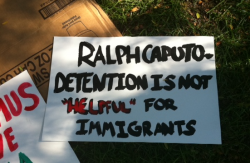 RALPH CAPUTO-
DETENTION IS NOT
"HELPFUL" FOR
IMMIGRANTS